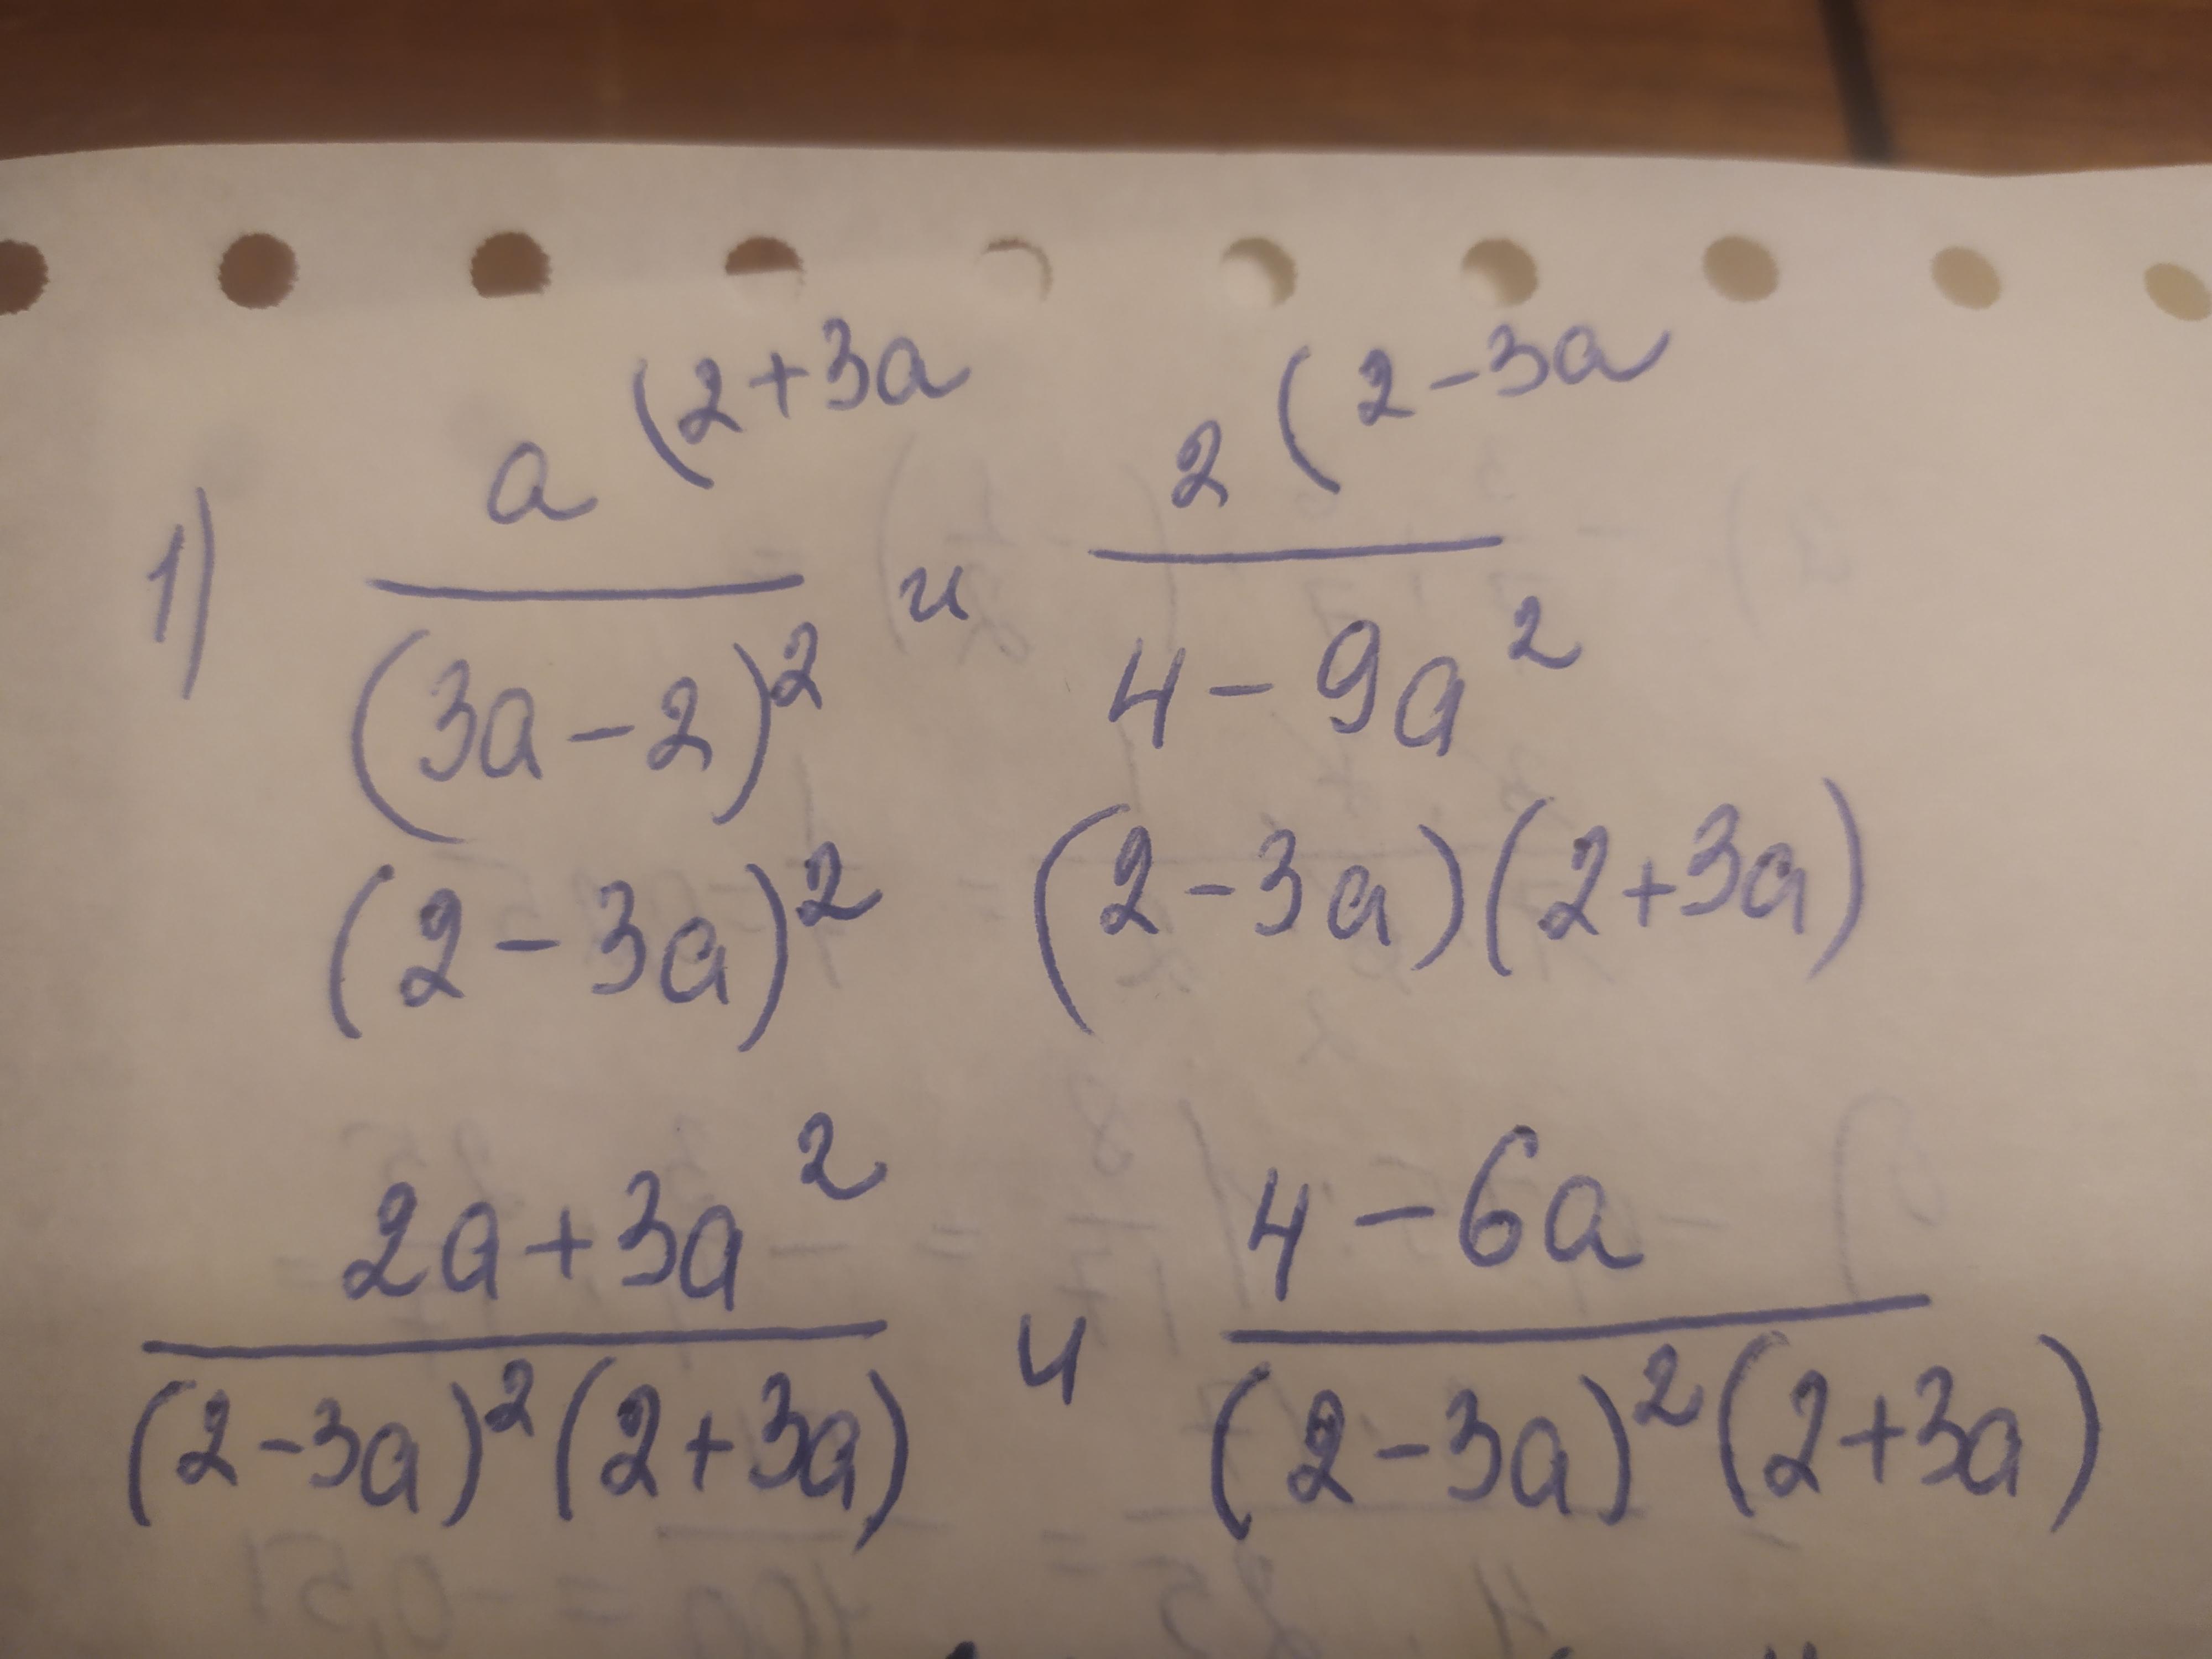 1) a (2+3a / (3a-2)² и 2 (2-3a / 4-9a²
(2-3a)² (2-3a)(2+3a)
2a+3a² / (2-3a)²(2+3a) и 4-6a / (2-3a)²(2+3a)